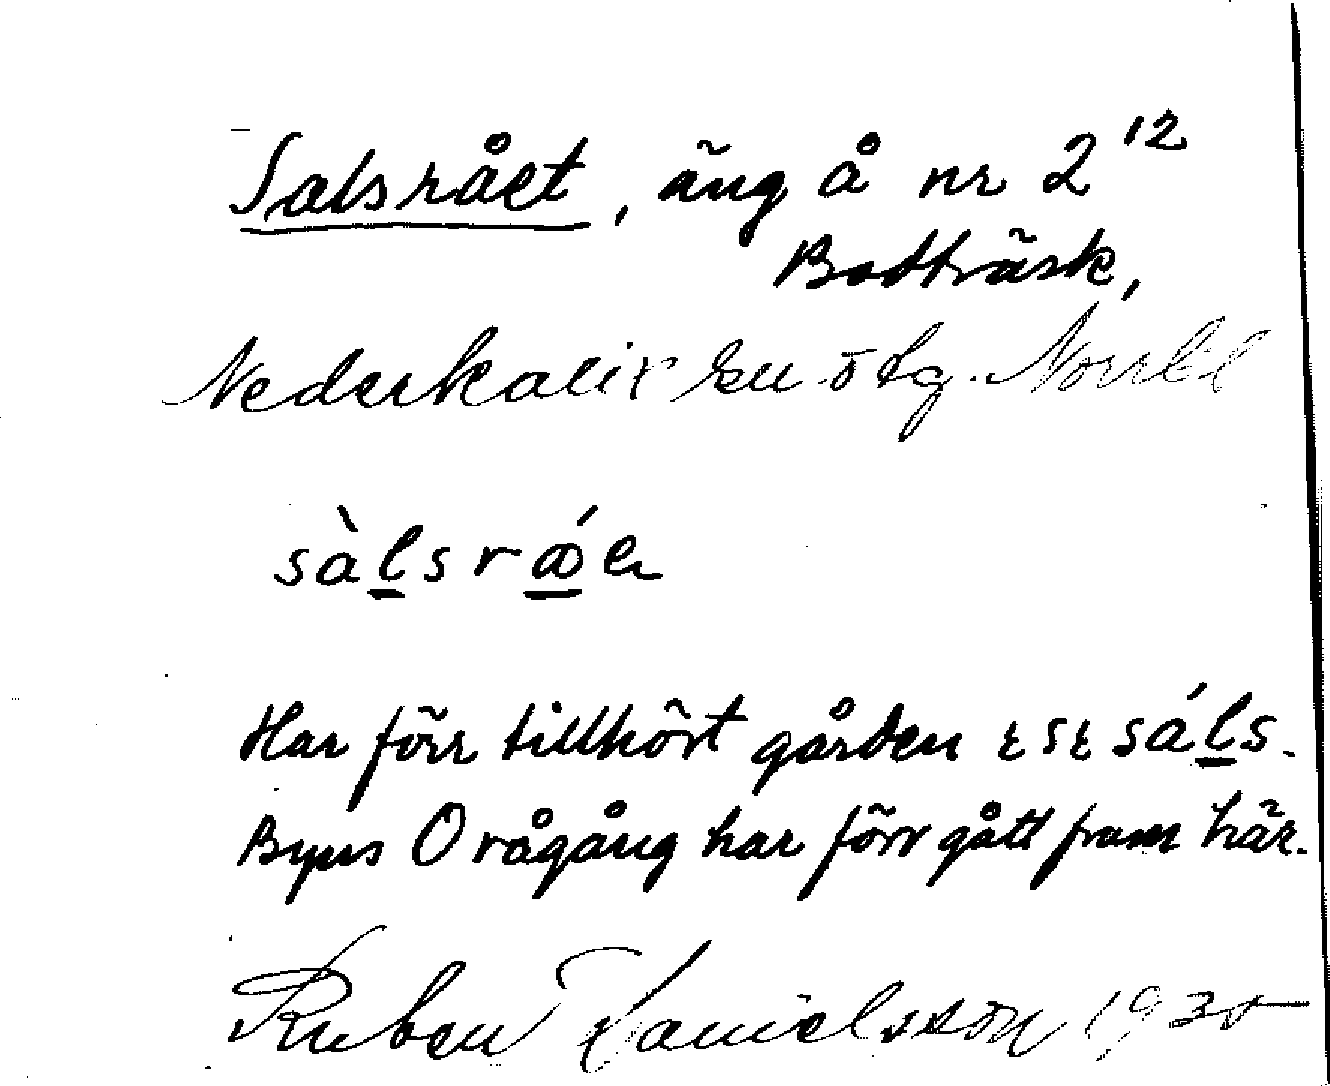 Salsrået, äng å nr 2¹²
Bodträsk,
Nederkalix sn ö tg. Norrb l
sàl̲srǽ̲e
Har förr tillhört gården sál̲s.
Byns O rågång har förr gått fram här.
Ruben Danielsson 1935